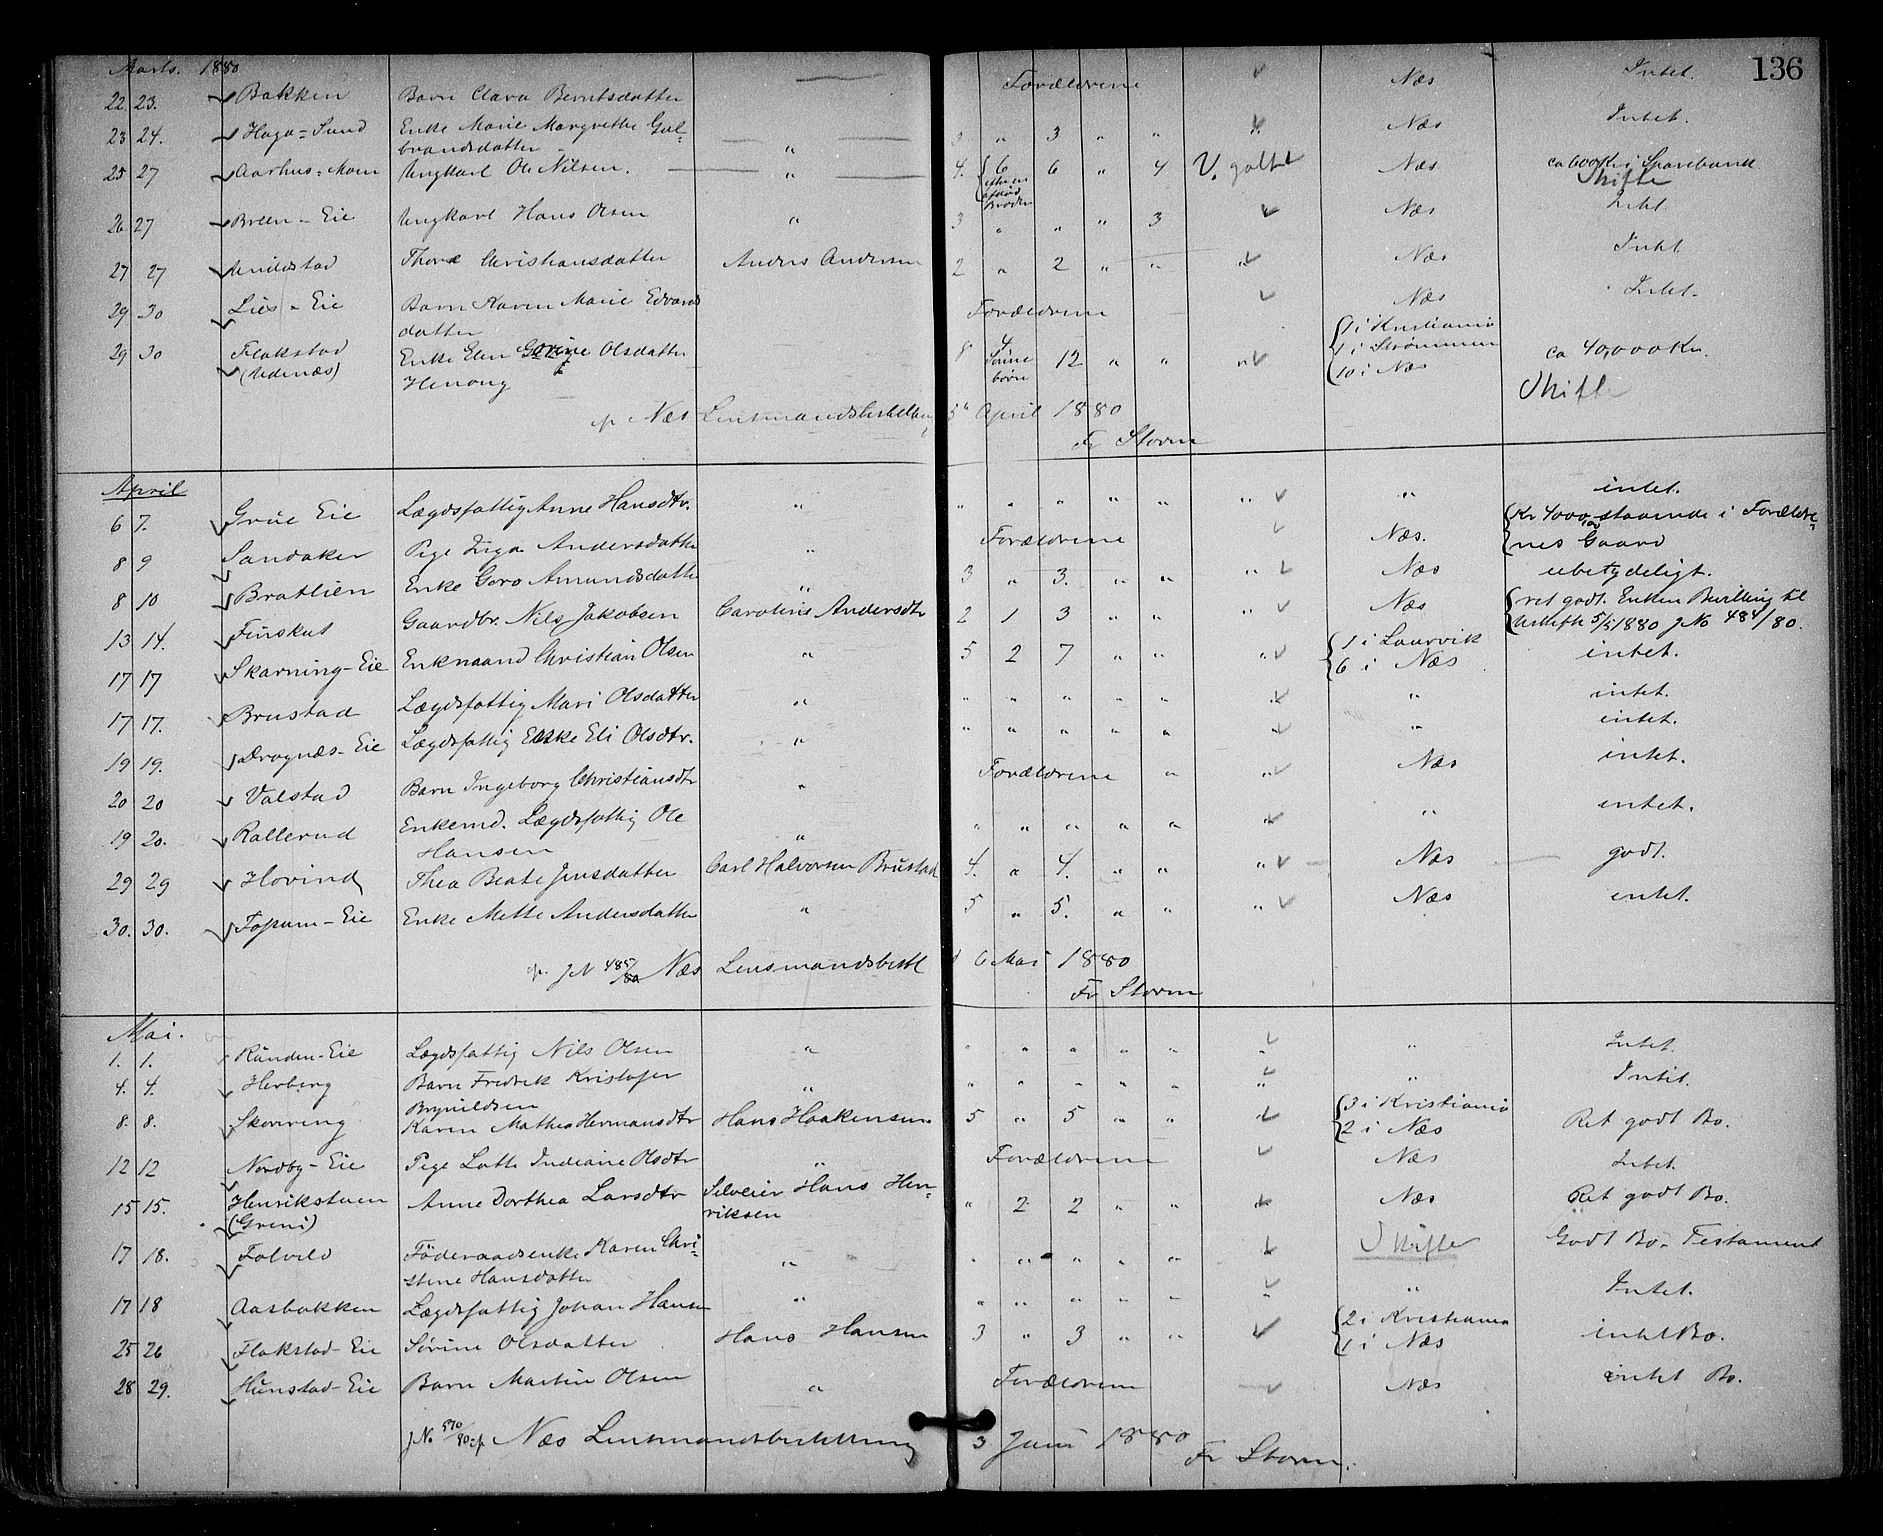 136
Marts. 1880
22. 23. Bakken Barn Clara Berntsdatter Forældrene Næs Intet.
23 24. Haga-Sund Enke Marie Margrethe Gul- 3 " 3 " " Næs Intet.
brandsdatter "
25 27 Aarhus-Moen Ungkarl Ole Nilsen. " 4. 6 6 " 4 V. galtd Næs ca 600 Kr i Sparebank
Skifte
broder
26 27 Breen-Eie Ungkarl Hans Olsen " 3 " " " 3 Næs Intet
27 27 Thora Christiansdatter Anders Andersen 2 " 2 " " " Næs Intet
29 30 Lies-Eie Barn Karen Marie Edvards Forældrene Næs Intet.
datter
29 30 Flakstad Enke Elen Olsdatter 8 4 12 " " " 1 i Kristiania ca 40,000 Kr.
(Udenæs) Henong børn 1 i Strømmen
10 i Næs Skifte
Næs Lensmandsbestilling 5 April 1880
Fr Storm
April
6 7. Grue Eie Lægdsfattig Anne Hansdtr. " " " " " " " " intet.
8 9 Sandaker Pige Inga Andersdatter " Forældrene Næs. Kr 4000,00 staaende i Forældre-
nes Gaard
8 10 Bratlien Enke Goro Amundsdatter " 3 " 3. " " " Næs ubetydeligt.
13 14. Finskut Gaardbr. Nils Jakobsen Caroline Andersdtr 2 1 3 " " " Næs ret godt. Enken Bevilling til
Uskifte 5/5 1880 J No 484/80.
17 17 Skarning-Eie Enkemand Christian Olsen " 5 2 7 " " " 1 i Laurvik intet.
6 i Næs
17 17. Brustad Lægdsfattig Mari Olsdatter " " " " " " " " intet.
19 19. Dragnæs-Eie Lægdsfattig Enke Eli Olsdtr. " " " " " " " " intet.
20 20 Valstad Barn Ingeborg Christiansdtr " Forældrene " " Næs intet.
19 20. Rallerud Enkemd. Lægdsfattig Ole " " " " " " " " intet.
Hansen
29 29 Hovind Thea Beate Jensdatter Carl Halvorsen Brustad 4. " 4. " " " Næs godt.
30. 30. Fossum-Eie Enke Mette Andersdatter " 5 " 5. " " " Næs intet.
JN 485/80 Næs Lensmandsbestl 6 Mai 1880
Fr Storm
Mai.
1. 1. Runden-Eie Lægdsfattig Nils Olsen " " " " " " " " Intet
4. 4. Herberg Barn Fredrik Kristofer " " " " " " " " Intet.
Brynildsen
8. 8. Skovring Karen Mathea Hermansdtr Hans Haakensen 5 " 5 " " " 3 i Kristiania Ret godt Bo.
2 i Næs
12 12 Nordby-Eie Pige Lotte Indiane Olsdtr " Forældrene Næs Intet.
15 15. Henrikstuen Anne Dorthea Larsdtr Selveier Hans Hen- " 2 2 " " " Næs Ret godt Bo.
(Greni) riksen
17 18. Folvild Föderaadsenke Karen Chri- " " " " " " " Skifte Godt Bo. Testament
stine Hansdatter
17 18 Aasbakken Lægdsfattig Johan Hansen " " " " " " " " Intet.
25 26 Flakstad-Eie Sørine Olsdatter Hans Hansen 3 " 3 " " " 2 i Kristiania intet Bo.
1 i Næs
28 29. Hunstad-Eie Barn Martin Olsen " Forældrene Næs intet Bo.
JNo. 570/80 Næs Lensmandsbestilling 3 Juni 1880
Fr Storm.